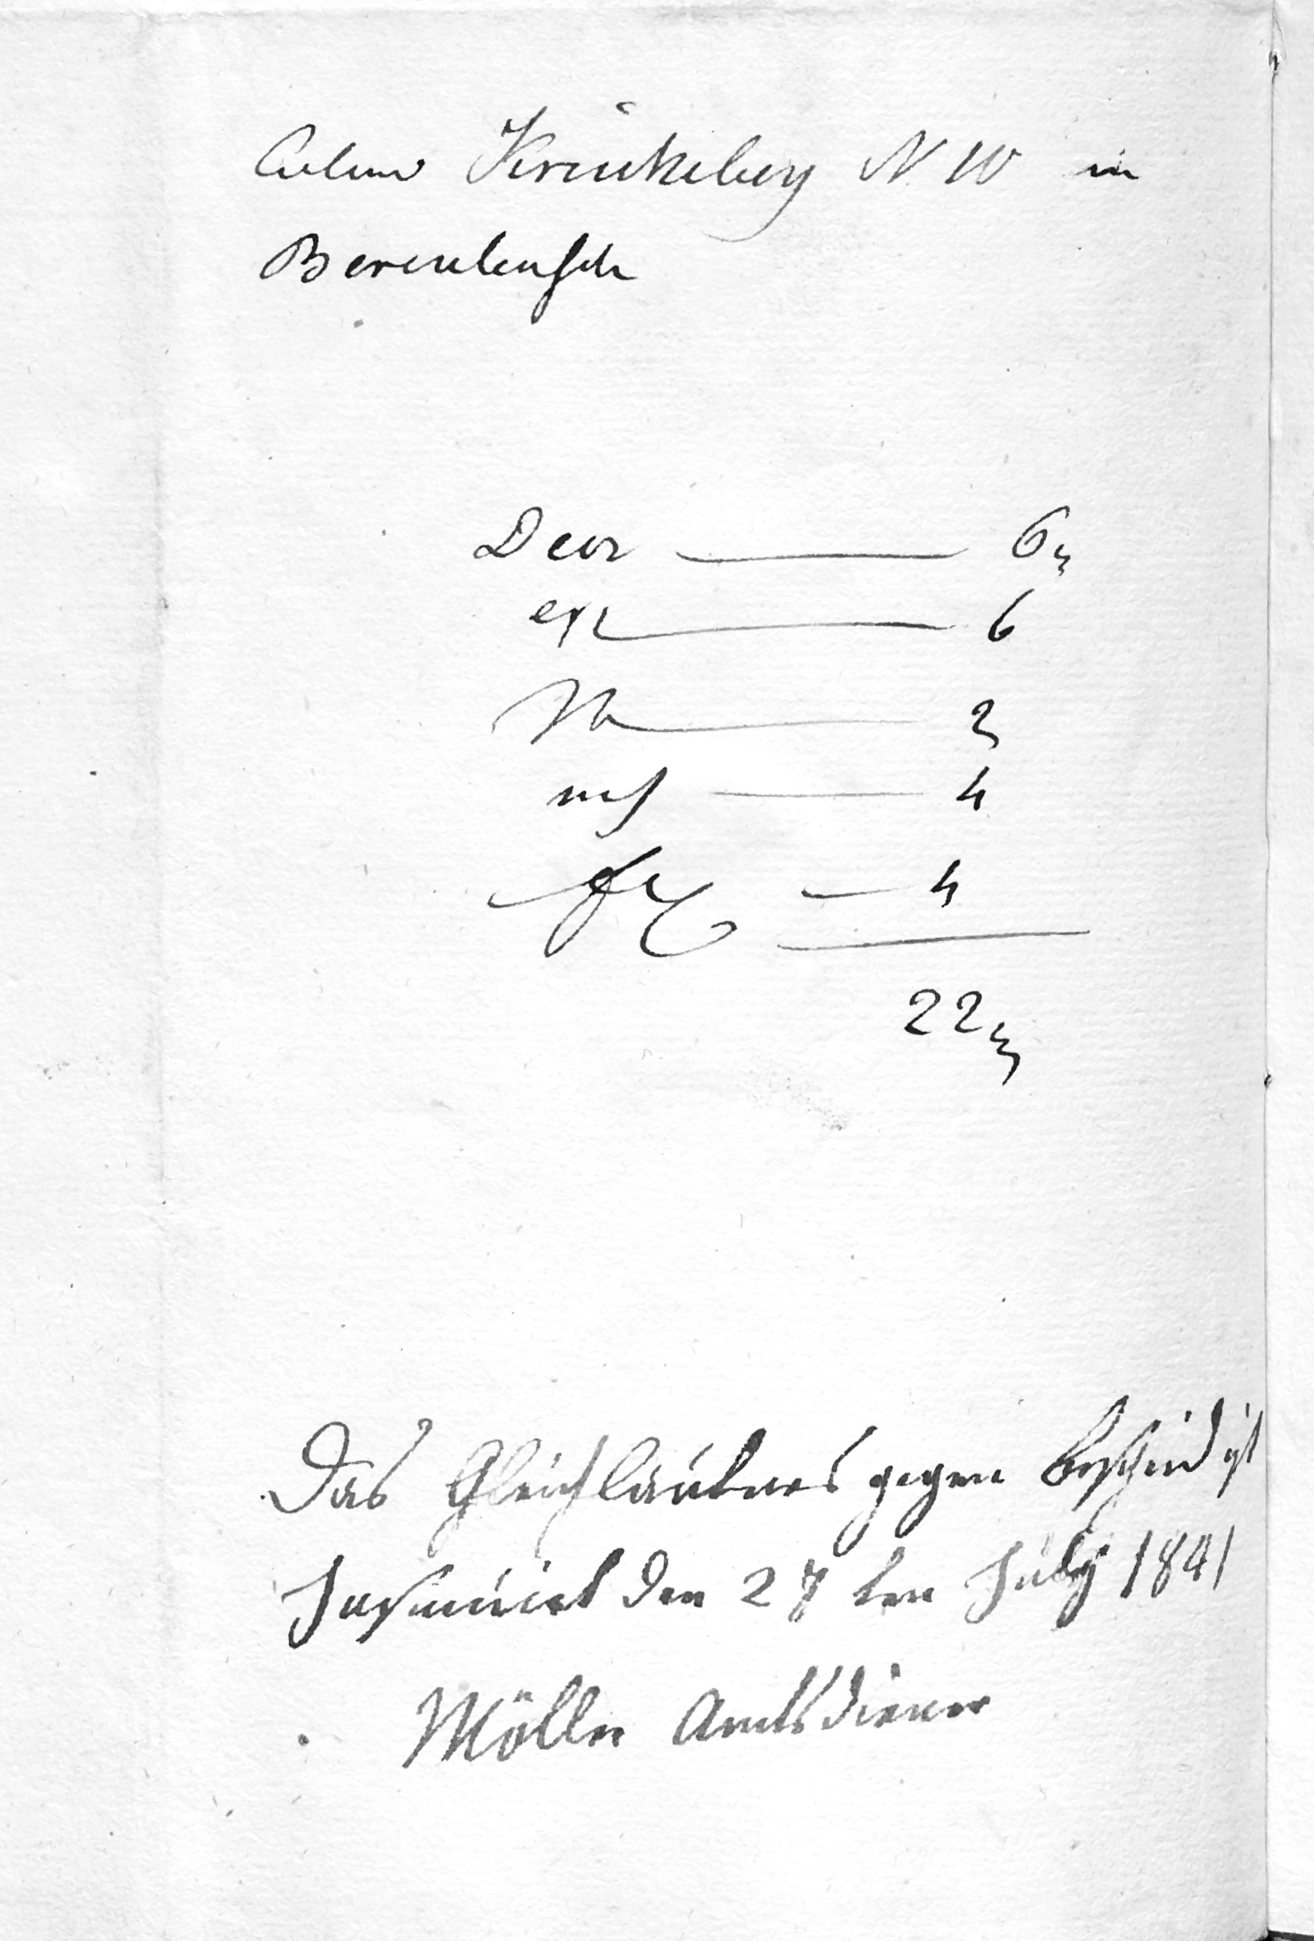 Colon Krückeberg N 10 in
Berenbusch
Decr 6
exp 6
2
ins 4
4
22
Das Gleichlautens gegen Bescheid ist
Insinuiert den 27 ten July 1841
Möller Amtsdiener